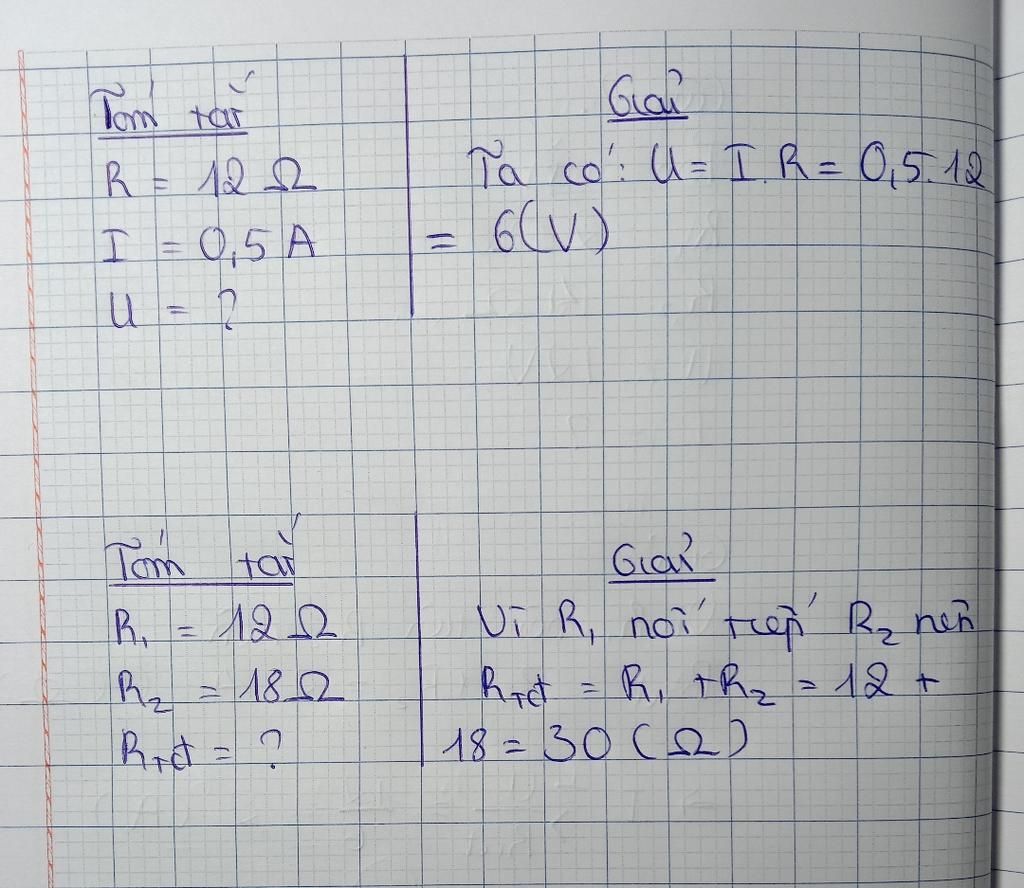 Tóm tắt
R = 12 Ω
I = 0,5 A
U = ?
Giải
Ta có: U = I.R = 0,5.12
= 6(V)
Tóm tắt
R₁ = 12 Ω
R₂ = 18 Ω
Rtđ = ?
Giải
Vì R₁ nối tiếp R₂ nên
Rtđ = R₁ + R₂ = 12 +
18 = 30 (Ω)